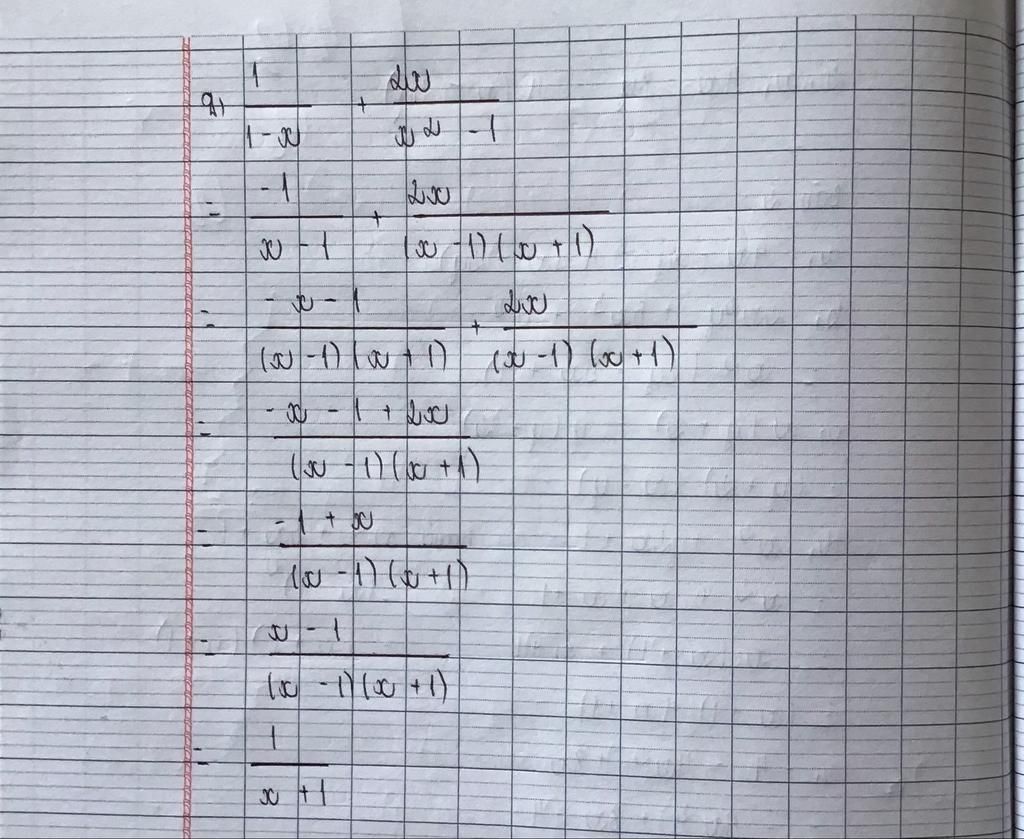 a, 1/(1-x) + 2x/(x² - 1)
= -1/(x - 1) + 2x/((x - 1)(x + 1))
= (-x - 1)/((x - 1)(x + 1)) + 2x/((x - 1)(x + 1))
= (-x - 1 + 2x)/((x - 1)(x + 1))
= (-1 + x)/((x - 1)(x + 1))
= (x - 1)/((x - 1)(x + 1))
= 1/(x + 1)